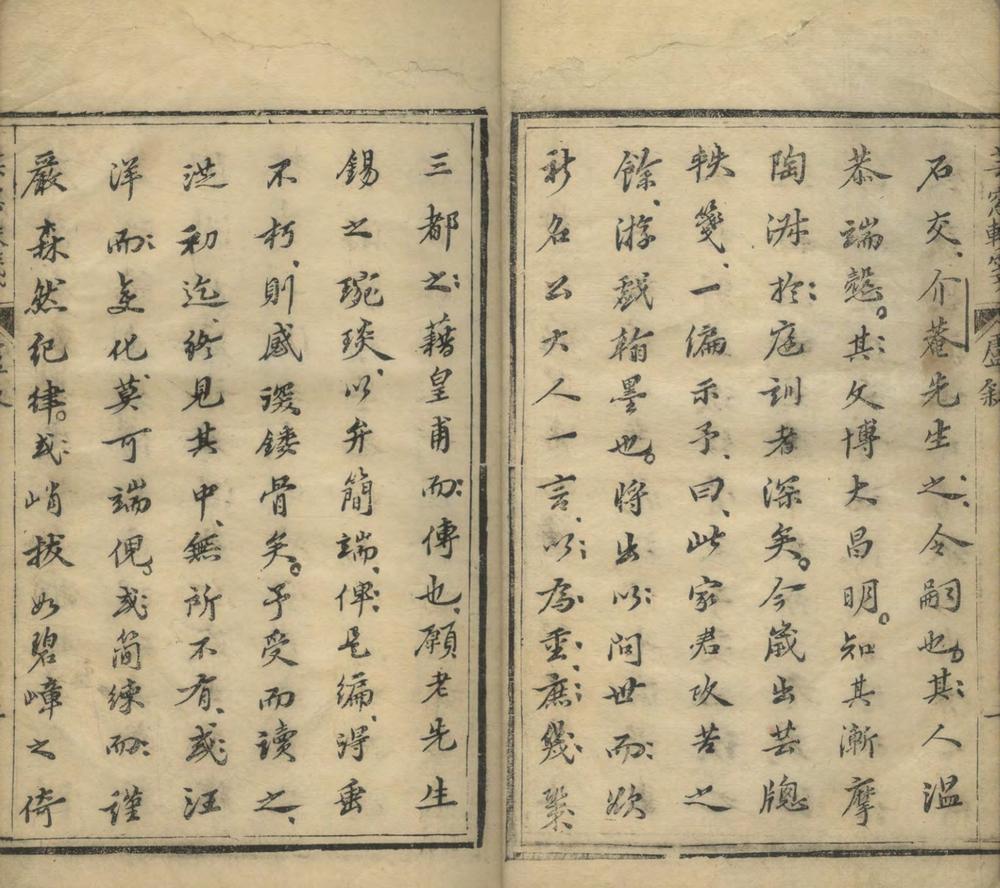 石交介菴先生之令嗣也其人溫
恭端慤其文博大昌明知其漸摩
陶淑於庭訓者深矣今歲出芸牕
軼箋一編示予曰此家君攻苦之
餘游戲翰墨也將出以問世而欲
新名公大人一言以為重庶幾桒
三都之藉皇甫而傳也願老先生
錫之琬琰以弁簡端俾是編得垂
不朽則感謖鏤骨矣予受而讀之
洪初迄終見其中無所不有或汪
洋而變化莫可端倪或簡練而謹
嚴森然紀律或峭拔如碧嶂之倚